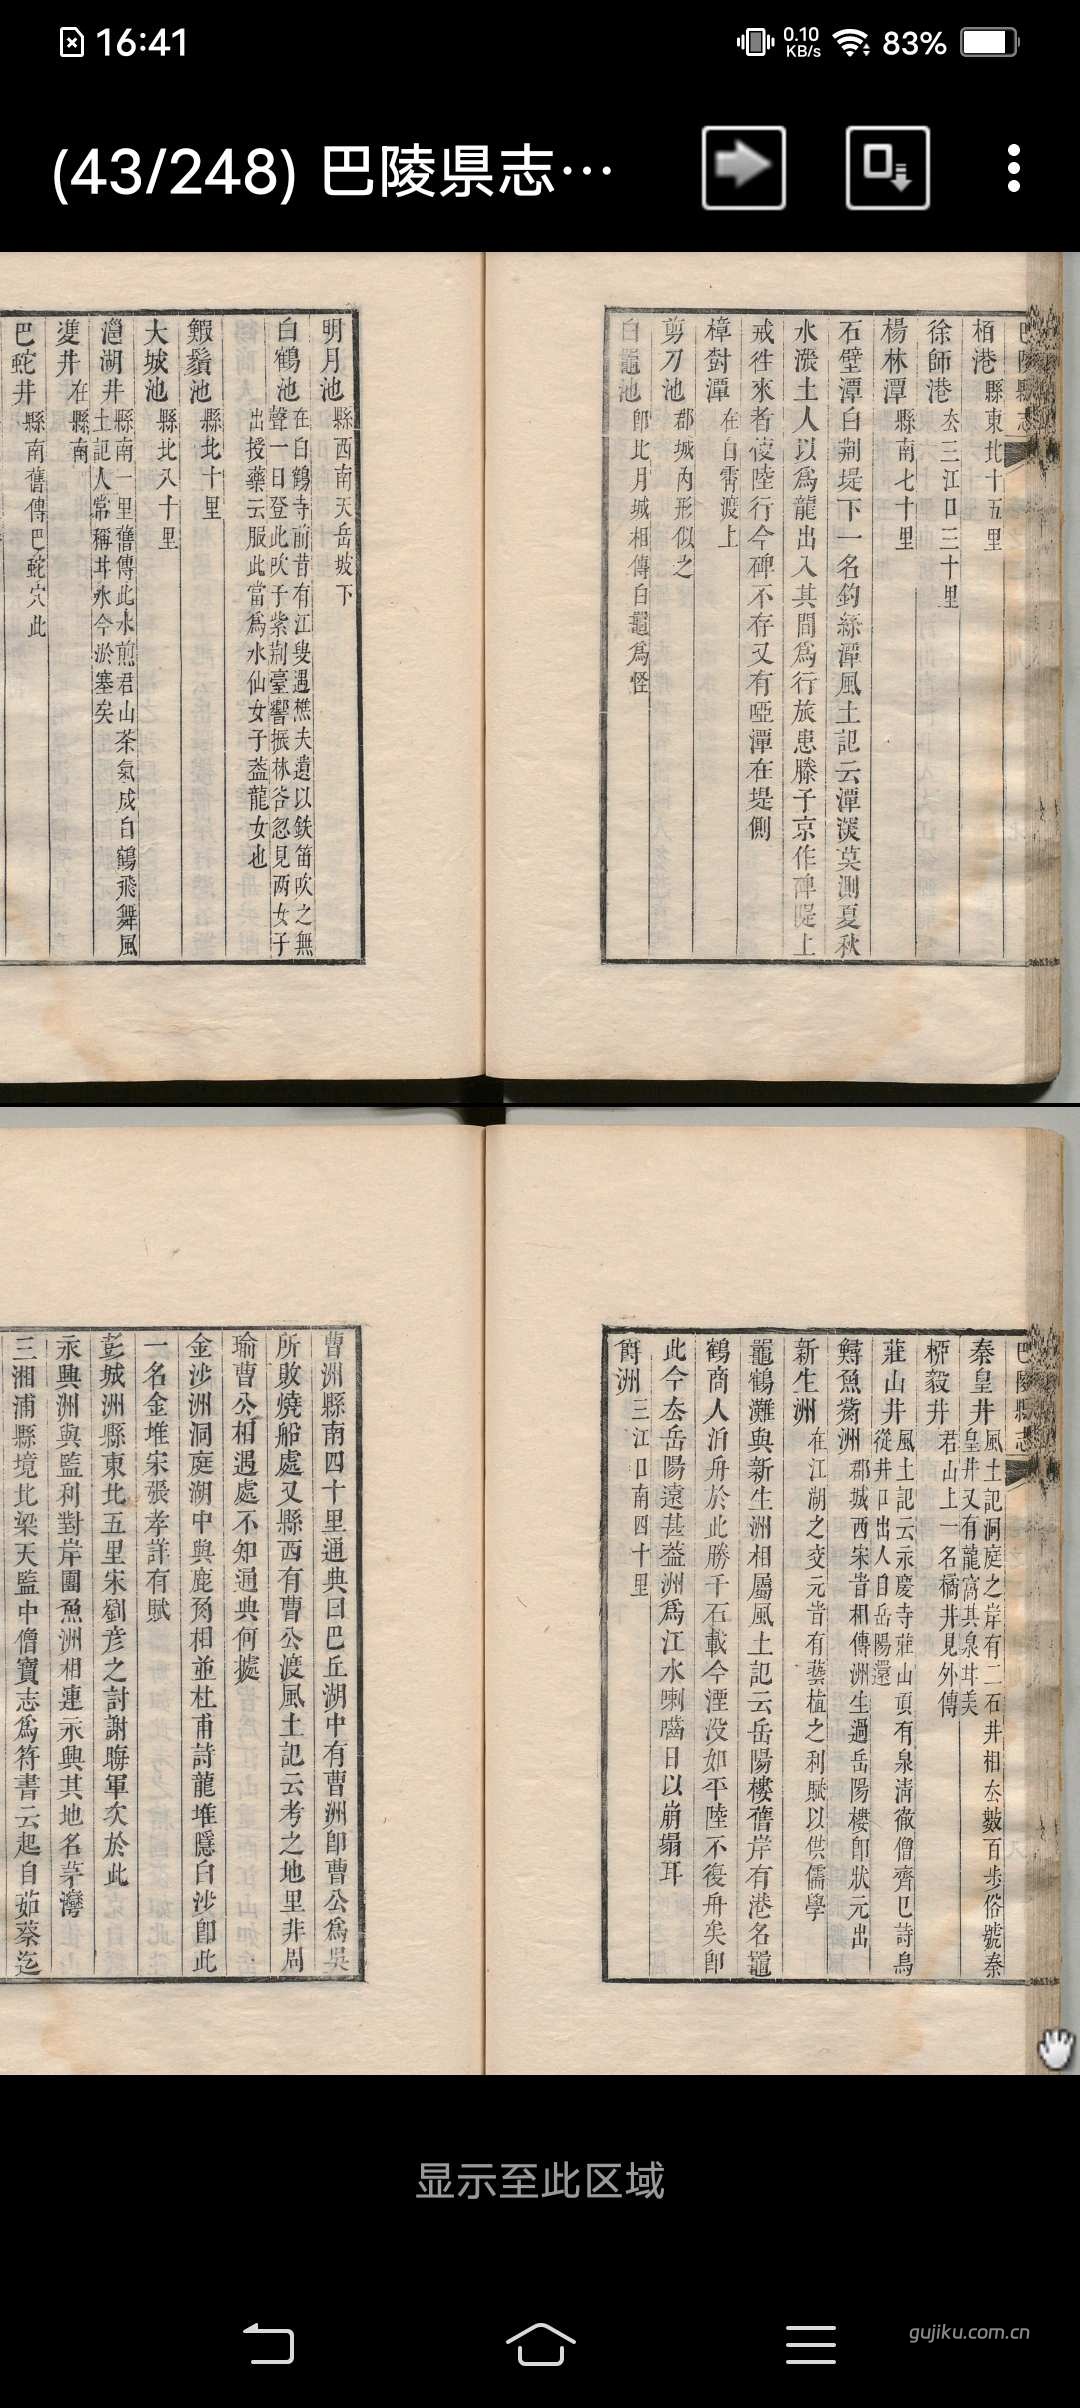 16:41
0.10
KB/s
83%
(43/248) 巴陵県志…
栢港縣東北十五里
徐師港厺三江口三十里
楊林潭縣南七十里
石壁潭白荆堤下一名釣絲潭風土記云潭淡莫測夏秋
水漲土人以爲龍出入其間爲行旅患滕子京作碑隄上
戒徃來者使陸行今碑不存又有啞潭在堤側
樟對潭在白霄渡上
剪刀池郡城內形似之
白鼉池卽北月城相傳白鼉爲怪
明月池縣西南天岳坡下
白鶴池在白鶴寺前昔有江叟遇樵夫遺以鉄笛吹之無
聲一日登此吹于紫荆臺響振林谷忽見两女子
出授藥云服此當爲水仙女子葢龍女也
鰕鬚池縣北十里
大城池縣北八十里
㴩湖井縣南一里舊傳此水煎君山茶氣成白鶴飛舞風
土記人常稱井水今淤塞矣
㕠井在縣南
巴蛇井縣南舊傳巴蛇穴此
巴陵縣志
秦皇井風土記洞庭之岸有二石井相厺數百步俗號秦
皇井又有龍窩其泉甘美
桺毅井君山上一名橘井見外傳
莊山井風土記云永慶寺莊山頂有泉淸徹僧齊巴詩鳥
從井口出人自岳陽還
鱘魚觜洲郡城西宋旹相傳洲生過岳陽樓卽狀元出
新生洲在江湖之交元旹有蓺植之利賦以供儒學
鼉鶴灘與新生洲相屬風土記云岳陽樓舊岸有港名鼉
鶴商人泊舟於此勝千石載今湮没如平陸不復舟矣卽
此今厺岳陽遠甚葢洲爲江水喇嚙日以崩塌耳
爵洲三江口南四十里
曹洲縣南四十里通典曰巴丘湖中有曹洲卽曹公爲吳
所敗燒船處又縣西有曹公渡風土記云考之地里非周
瑜曹公相遇處不知通典何據
金沙洲洞庭湖中與鹿角相並杜甫詩龍堆隱白沙卽此
一名金堆宋張孝詳有賦
彭城洲縣東北五里宋劉彦之討謝晦軍次於此
永興洲與監利對岸團魚洲相連永興其地名茅灣
三湘浦縣境北梁天監中僧寶志爲符書云起自茹蔡迄
显示至此区域
gujiku.com.cn